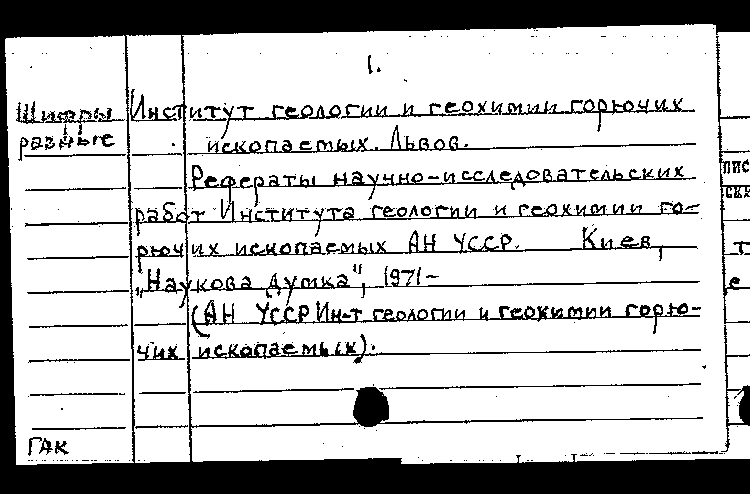 1.
Шифры Институт геологии и геохимии горючих
разные ископаемых. Львов.
Рефераты научно-исследовательских
работ Института геологии и геохимии го-
рючих ископаемых АН УССР. Киев,
"Наукова думка", 1971-
(АН УССР Ин-т геологии и геохимии горю-
чих ископаемых).
ГАК